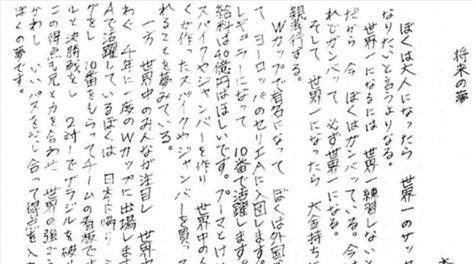 将来の夢
ぼくは大人になったら 世界一のサッカ
なりたいと言うよりなる。
世界一になるには 世界一練習しないと
だから 今 ぼくはガンバッている。今
れどガンバッて 必ず世界一になる。
そして 世界一になったら 大金持ち
親孝行する。
Wカップで有名になって ぼくは外国
て ヨーロッパのセリエAに入団します。
レギュラーになって 10番で活躍します。
給料は40億円はほしいです。プーマとけ
スパイクやジャンバーを作り 世界中の
くが作ったスパイクやジャンバーを買っ
れることを夢みている。
一方 世界中のみんなが注目し 世界
わぐ 4年に一度のWカップに出場しま
Aで活躍しているぼくは 日本に帰り
グをし 10番をもらってチームの看板で
ルと決勝戦をし 2対1でブラジルを破
この得点も兄と力を合わせ 世界の強ごう
かわし いいパスをだし合って得点を入
ぼくの夢です。